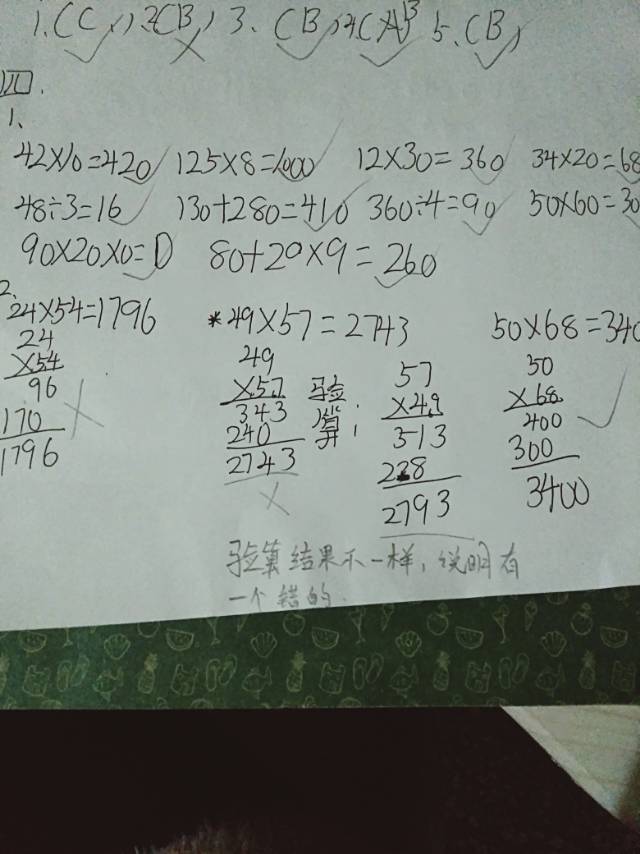 1.(C) 2(B) 3.(B) 4(A)B 5.(B)
四.
1、
42×10=420 125×8=1000 12×30=360 34×20=68
48÷3=16 130+280=410 360÷4=90 50×60=30
90×20×0=0 80+20×9=260
2、
24×54=1796 *49×57=2743 50×68=340
24 49 57 50
×54 ×57 验 ×49 ×68
96 343 算: 513 400
170 240 228 300
1796 2743 2793 3400
验算结果不一样,说明有
一个错的.